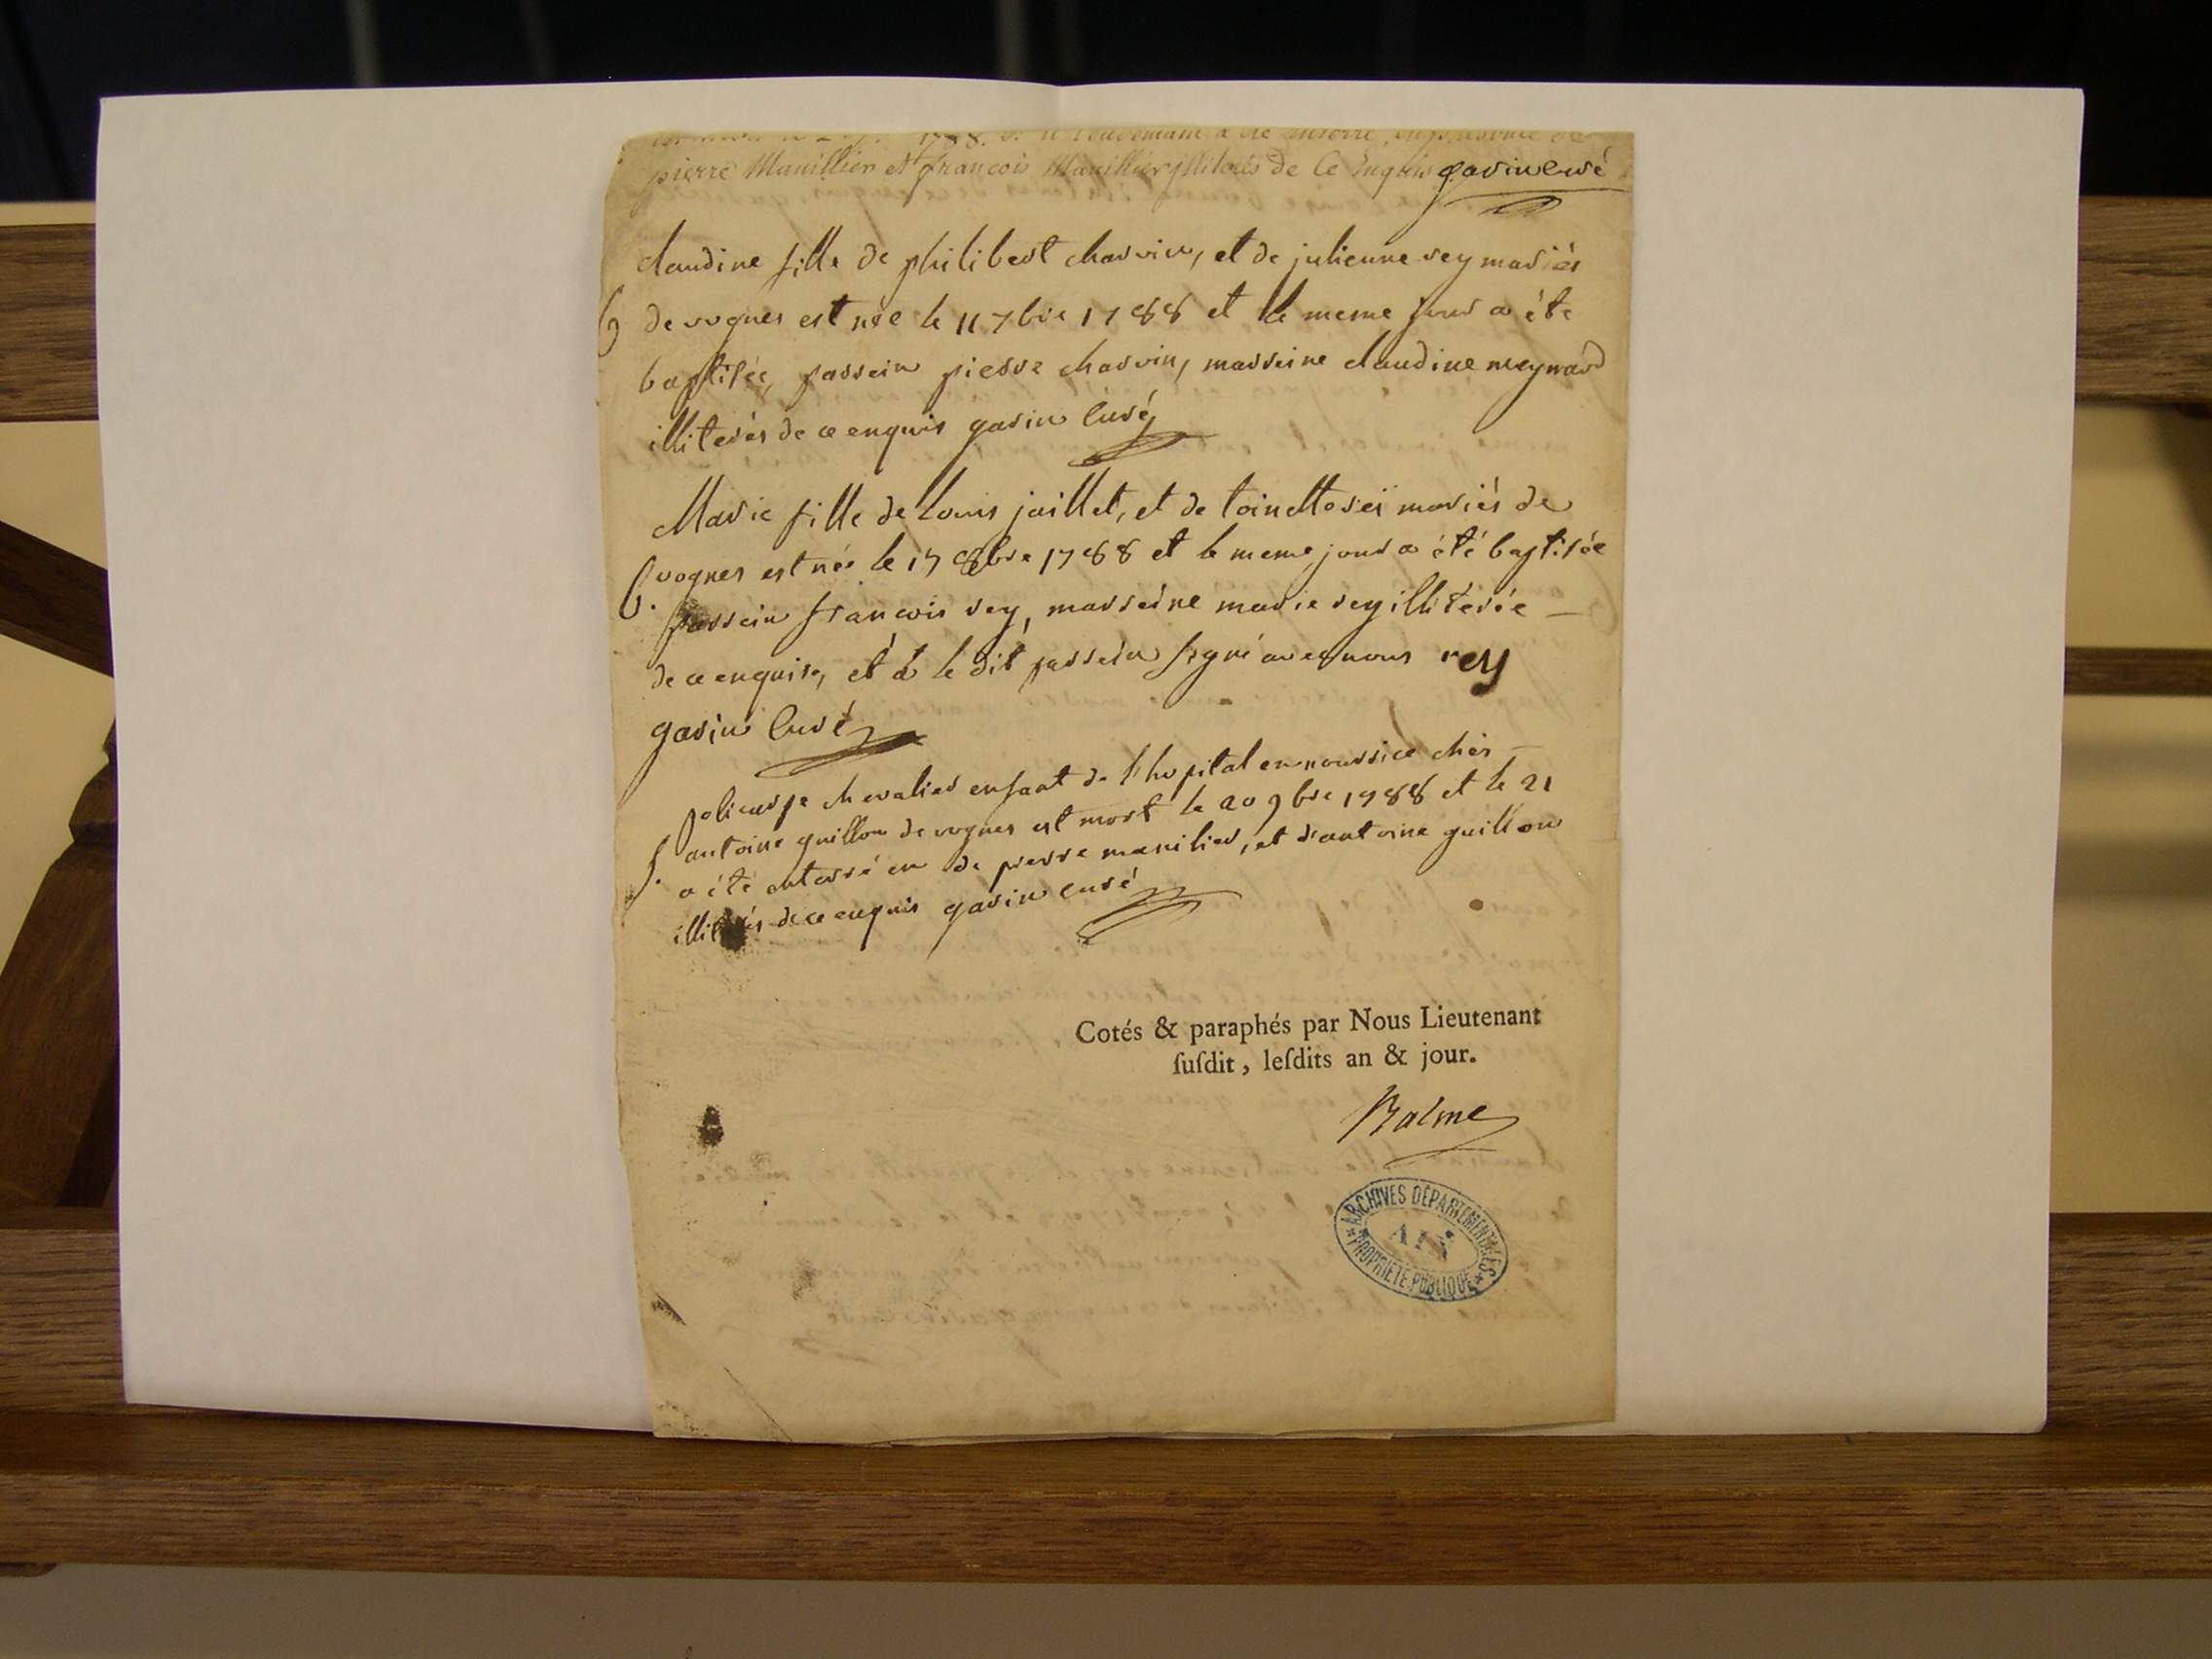 1788. et le lendemain a été enterré, en presence de
pierre Manillier et françois Manillier illiterés de Ce Enquis garin curé
claudine fille de philibert charvin, et de julienne rey mariés
b de vognes est née le 11 7bre 1788 et le meme jour a été
baptisée, parrein pierre charvin, marreine claudine meynard
illiterés de ce enquis garin Curé
Marie fille de Louis jaillet, et de toinette reï mariés de
b. vognes est née le 17 8bre 1788 et le meme jour a été baptisée
parrein francois rey, marreine marie rey illiterée —
de ce enquise, et a le dit parrein signé avec nous rey
garin Curé
policarpe chevalier enfant de l'hopital en nourrice chés —
antoine guillon de vognes est mort le 20 9bre 1788 et le 21
s. a été enterré en de pierre manilier, et d'antoine guillon
illiterés de ce enquis garin curé
Cotés & paraphés par Nous Lieutenant
ſuſdit, leſdits an & jour.
Balme
ARCHIVES DÉPARTEMENTALES
AIN
PROPRIÉTÉ PUBLIQUE